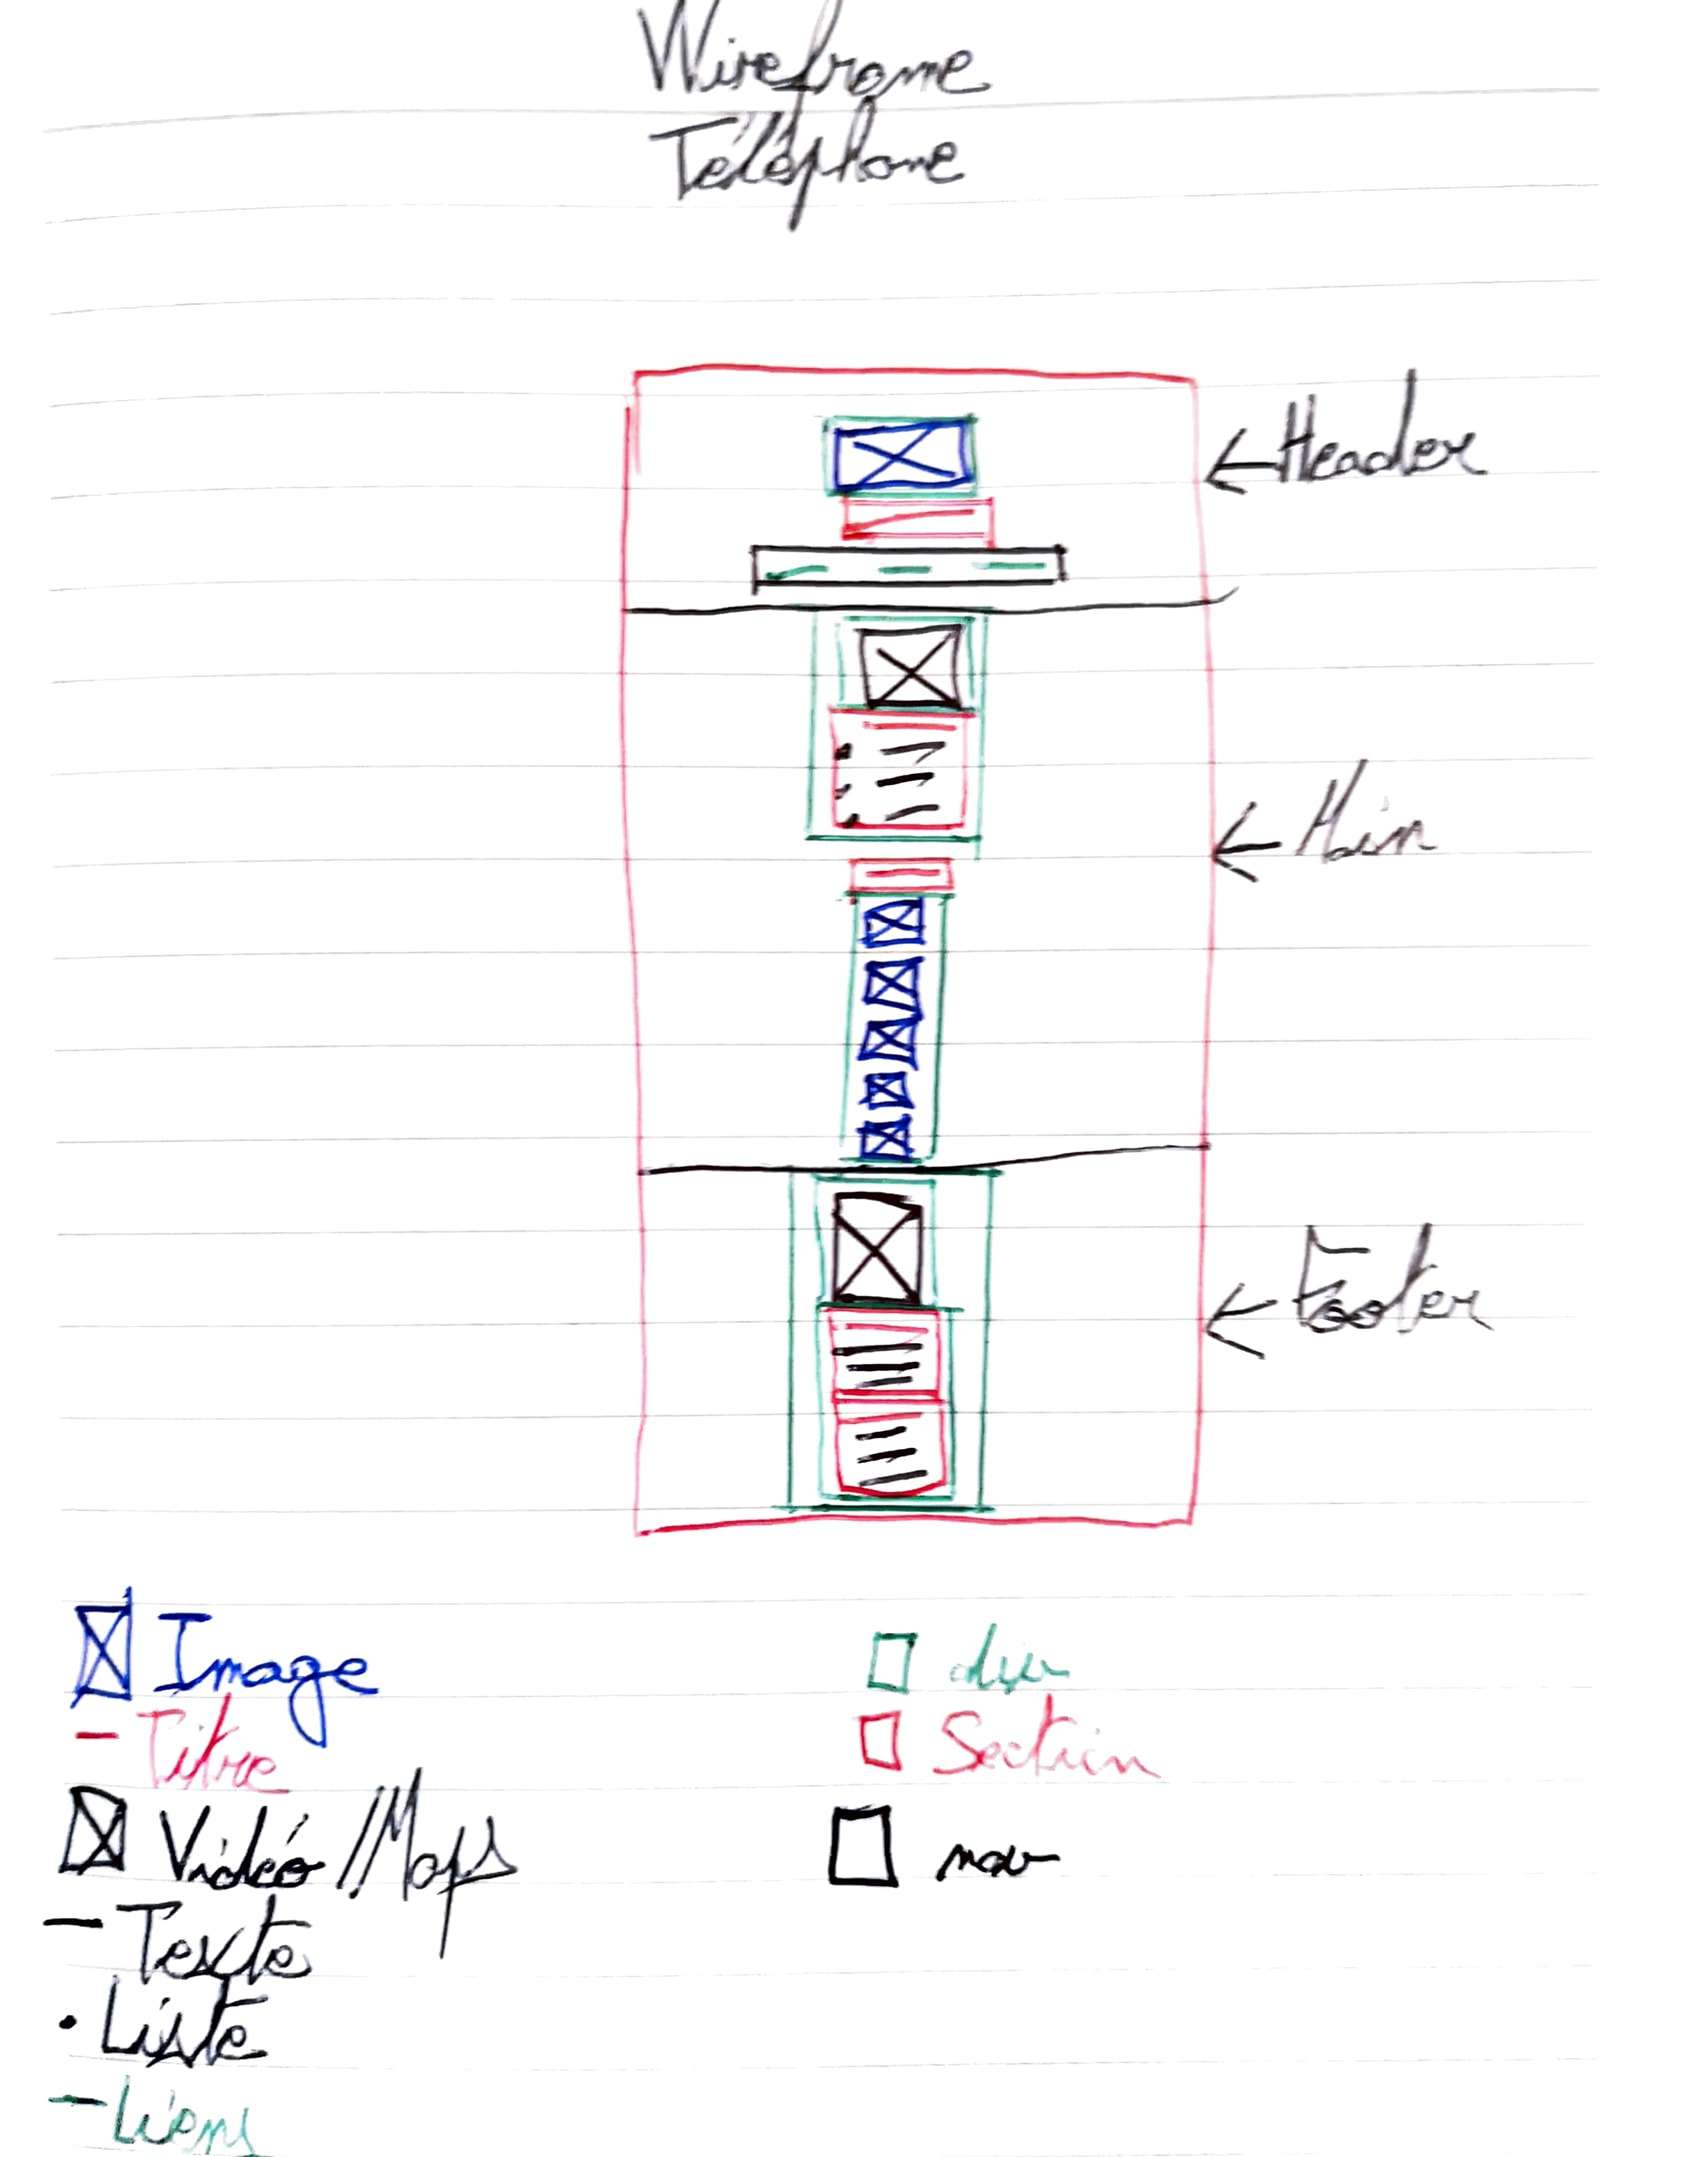 Wireframe
Téléphone
Header
Main
Footer
Image
Titre
Vidéo//Maps
Texte
Liste
Liens
div
Section
nav